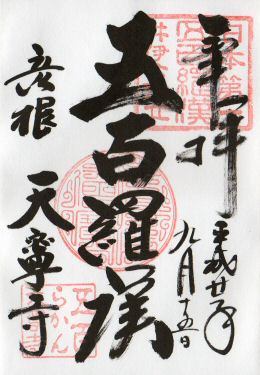 奉拝
平成廿一年
九月十五日
五百羅漢
彦根 天寧寺
五百
らかん